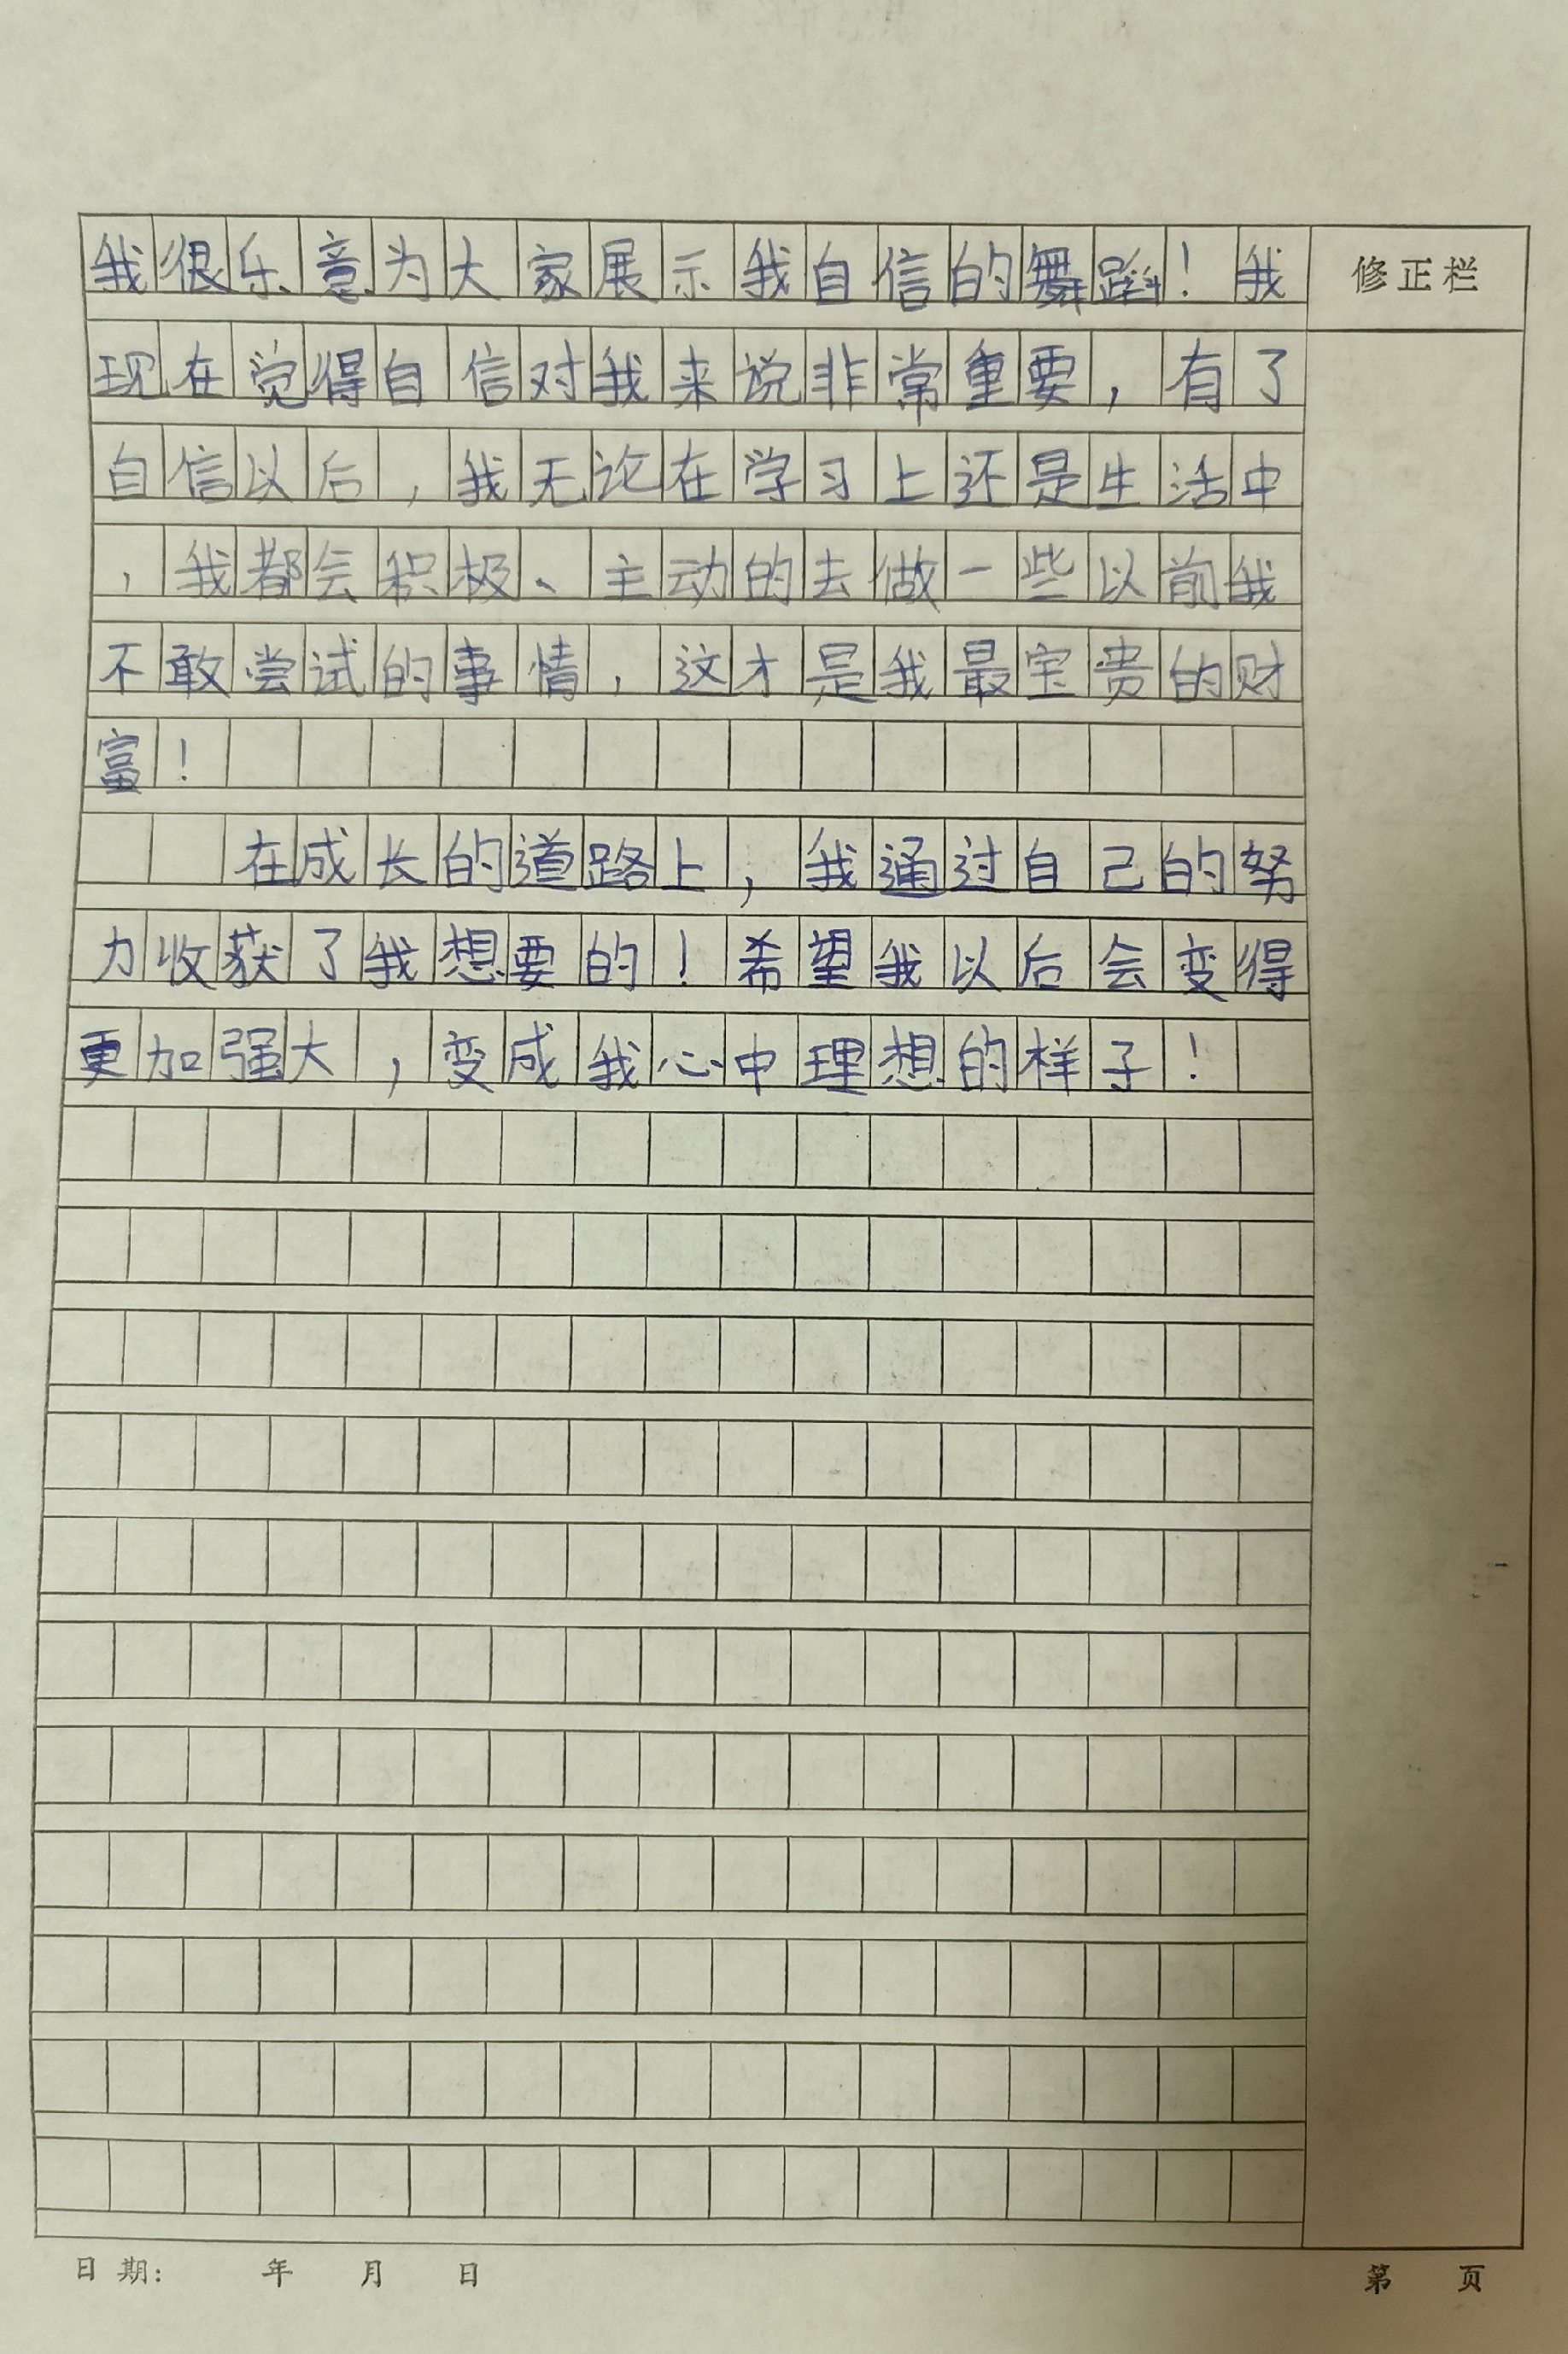 我很乐意为大家展示我自信的舞蹈！我
修正栏
现在觉得自信对我来说非常重要，有了
自信以后，我无论在学习上还是生活中
，我都会积极、主动的去做一些以前我
不敢尝试的事情，这才是我最宝贵的财
富！
在成长的道路上，我通过自己的努
力收获了我想要的！希望我以后会变得
更加强大，变成我心中理想的样子！
日期： 年 月 日
第 页